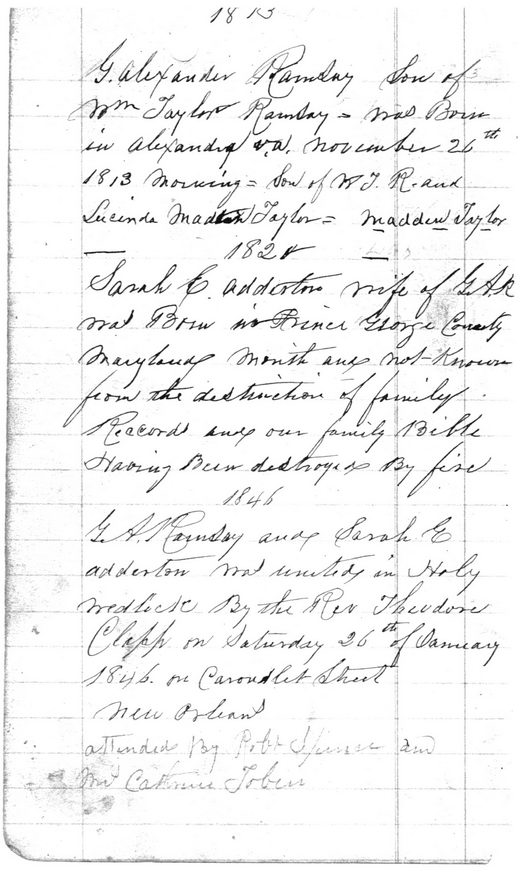 1813
G. Alexander Ramsay Son of
Wm Taylor Ramsay = was Born
in Alexandria va. November 26th
1813 Morning = Son of W T. R. and
Lucinda Madden Taylor = Madden Taylor
1824
Sarah E. Adderton wife of G.A.R
was Born in Prince George County
Maryland Month and not Known
from the destruction of family
Reccords and our family Bible
Having Been destroyed By fire
1846
G.A. Ramsay and Sarah E
Adderton was united in Holy
wedlock By the Rev Theodore
Clapp on Saturday 26th of January
1846. on Carondlet Street
New Orleans
attended By Robt Spence and
Mrs Catherine Tobin